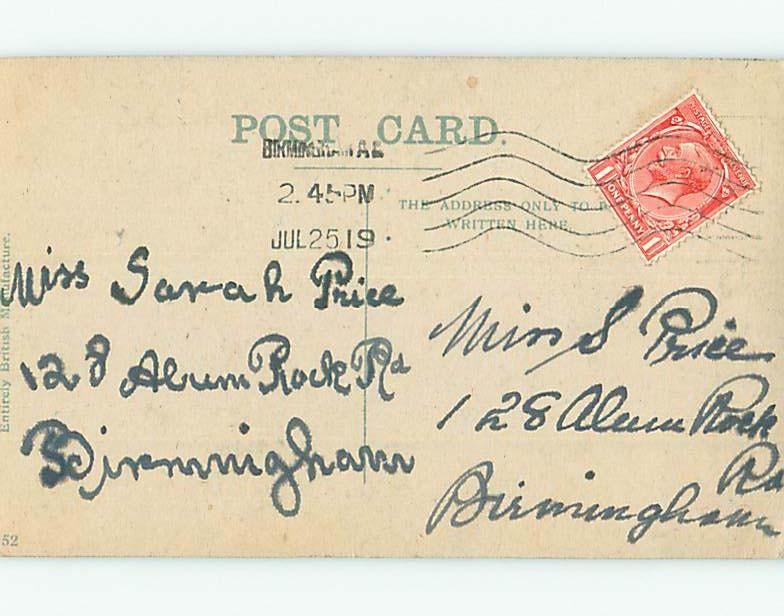 POST CARD.
BIRMINGHAM
2.45PM
JUL 25 19
THE ADDRESS ONLY TO
WRITTEN HERE.
POSTAGE
ONE PENNY
1
1
Entirely British Manufacture.
Miss Sarah Price
128 Alum Rock Rd
Birmingham
Miss S Price
128 Alum Rock
Rd
Birmingham
52